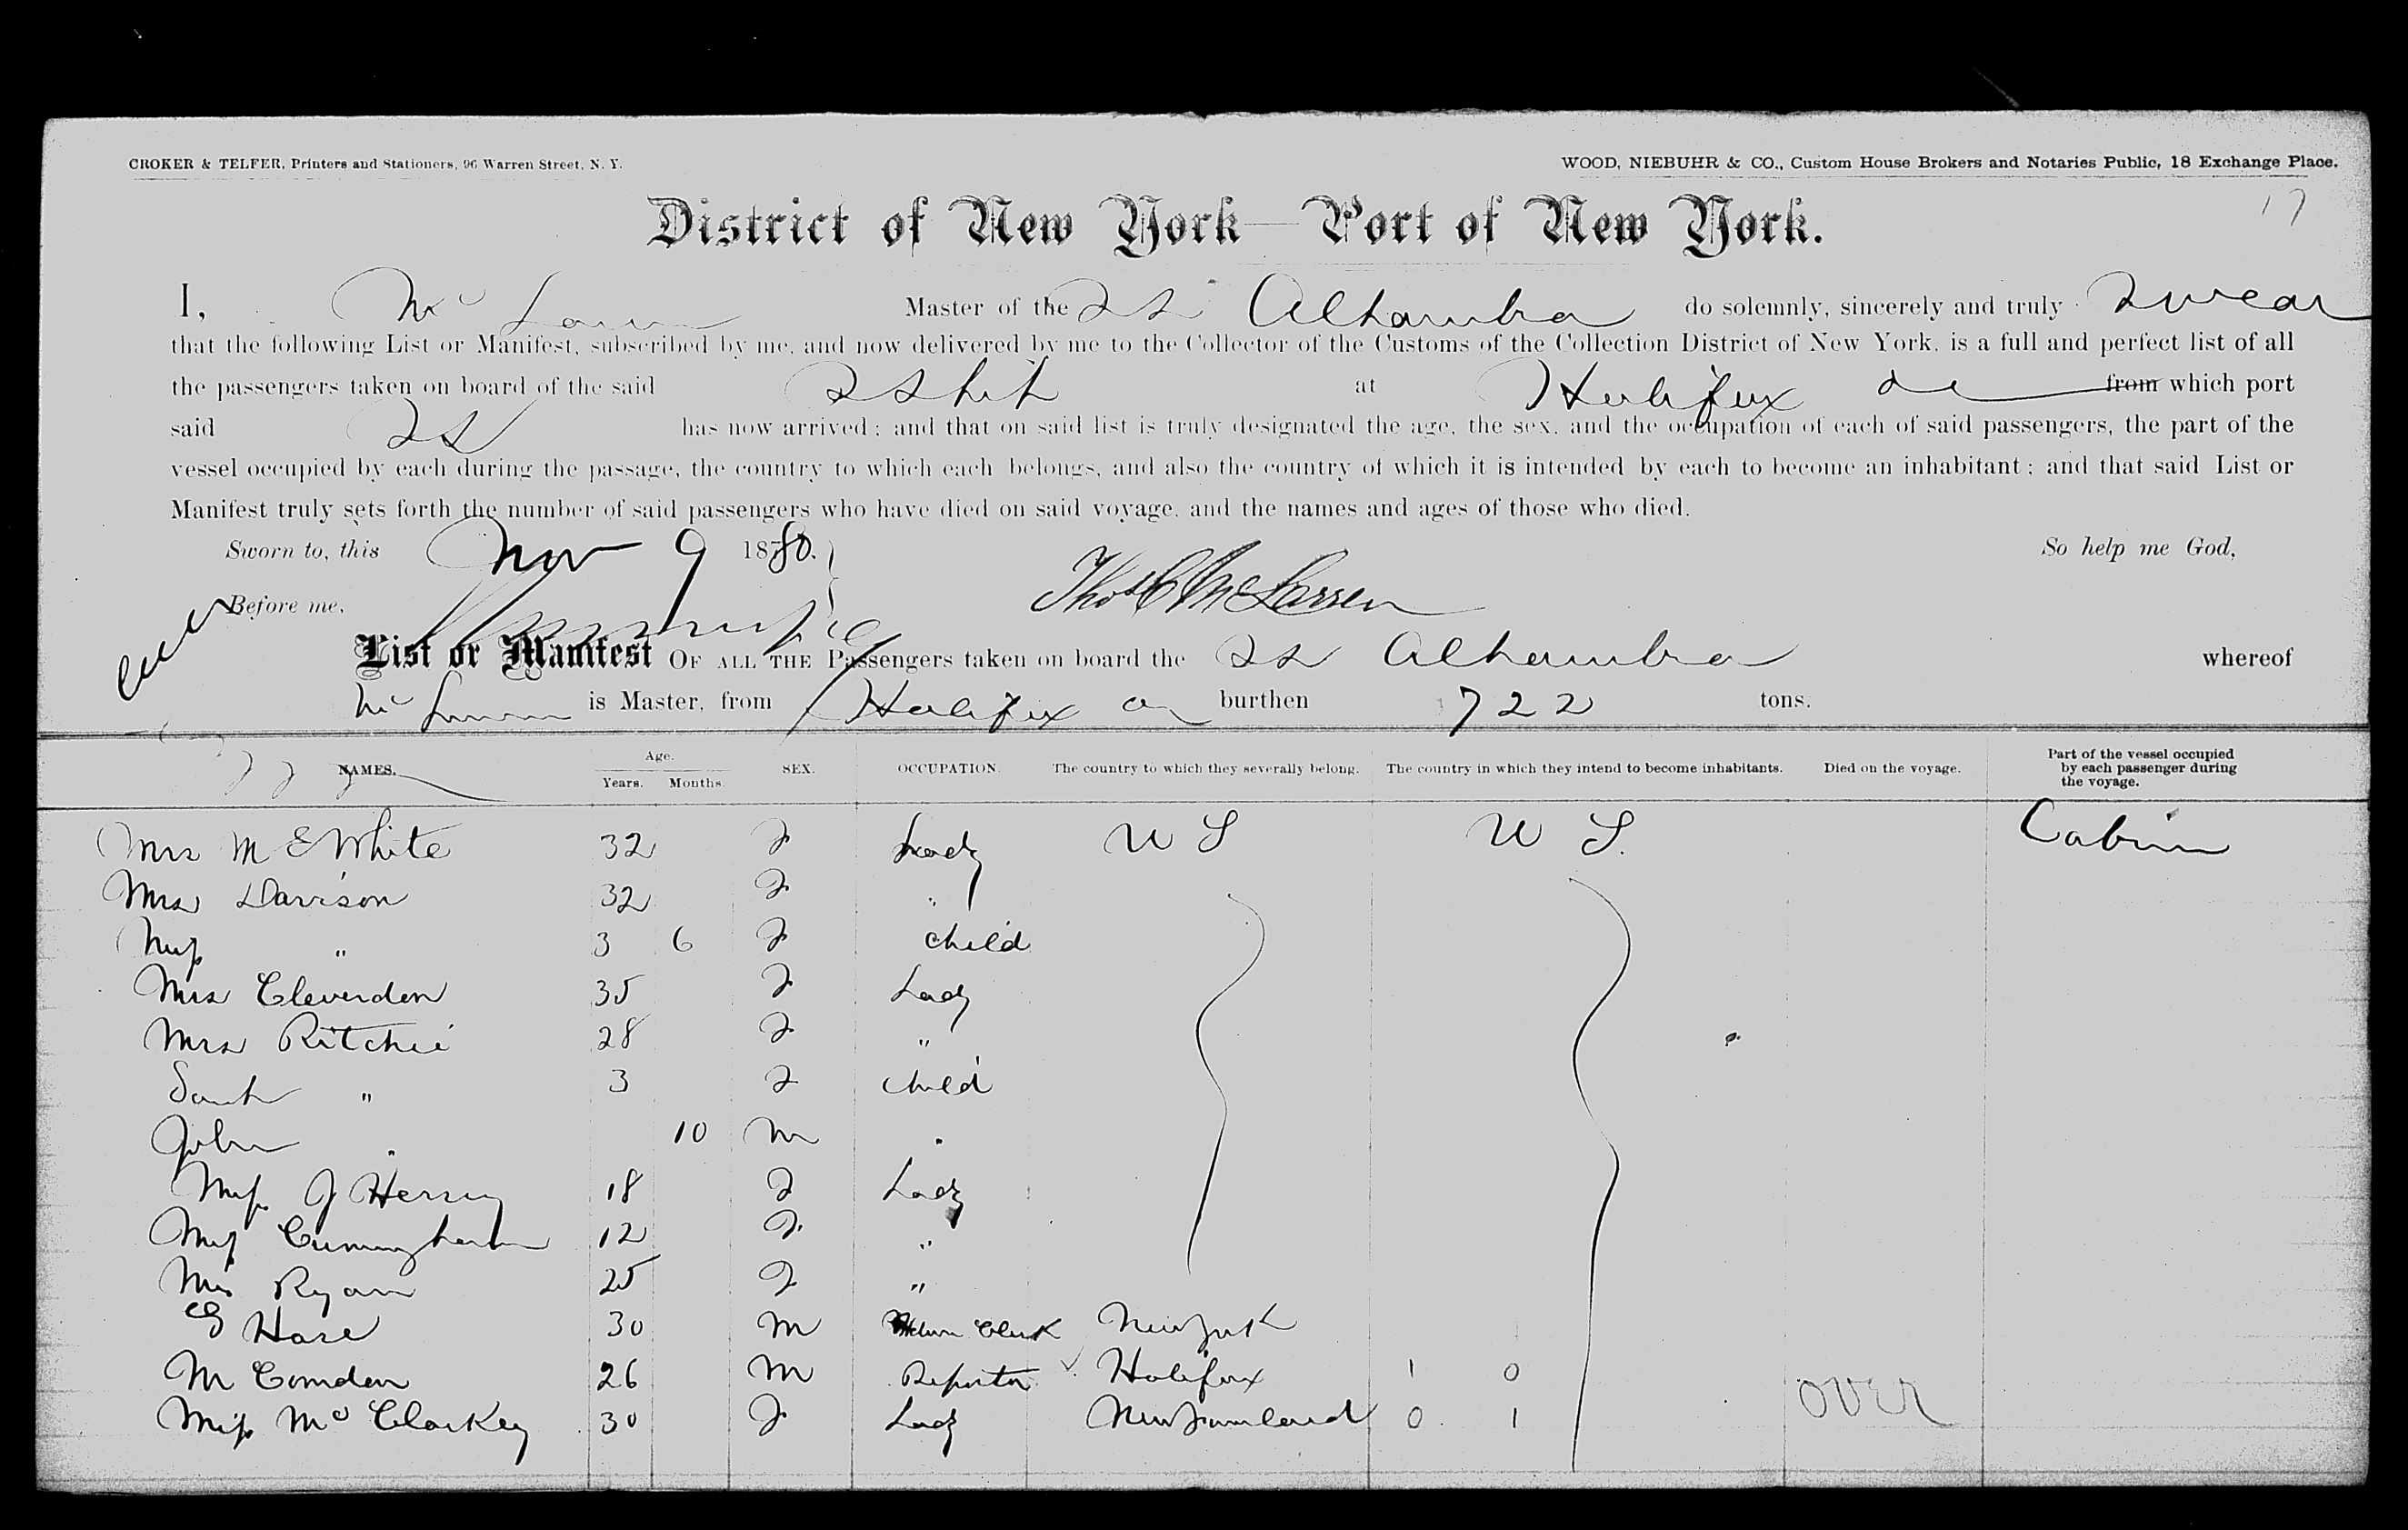 CROKER & TELFER, Printers and Stationers, 96 Warren Street, N. Y.
WOOD, NIEBUHR & CO., Custom House Brokers and Notaries Public, 18 Exchange Place.
17
District of New York—Port of New York.
I, Mc Master of the SS Alhambra do solemnly, sincerely and truly swear
that the following List or Manifest, subscribed by me, and now delivered by me to the Collector of the Customs of the Collection District of New York, is a full and perfect list of all
the passengers taken on board of the said SShip at Halifax from which port
said SS has now arrived; and that on said list is truly designated the age, the sex, and the occupation of each of said passengers, the part of the
vessel occupied by each during the passage, the country to which each belongs, and also the country of which it is intended by each to become an inhabitant; and that said List or
Manifest truly sets forth the number of said passengers who have died on said voyage, and the names and ages of those who died.
Sworn to, this Nov 9 1880. So help me God,
Before me, Thos C McLarren
List or Manifest OF ALL THE Passengers taken on board the SS Alhambra whereof
Mc is Master, from Halifax burthen 722 tons.
NAMES. Age. Years. Months. SEX. OCCUPATION. The country to which they severally belong. The country in which they intend to become inhabitants. Died on the voyage. Part of the vessel occupied by each passenger during the voyage.
Mrs M E White 32 F Lady U S U S. Cabin
Mrs Davison 32 F "
Miss " 3 6 F child
Mrs Cleverdon 35 F Lady
Mrs Ritchie 28 F "
Sarah " 3 F child
John " 10 M "
Miss J Hersey 18 F Lady
Miss Cunningham 12 F "
Mrs Ryan 25 F "
E Hare 30 M Clerk New York
M Comden 26 M Reporter Halifax 1 0
Miss Mc Clarkey 30 F Lady Newfoundland 0 1
OVER